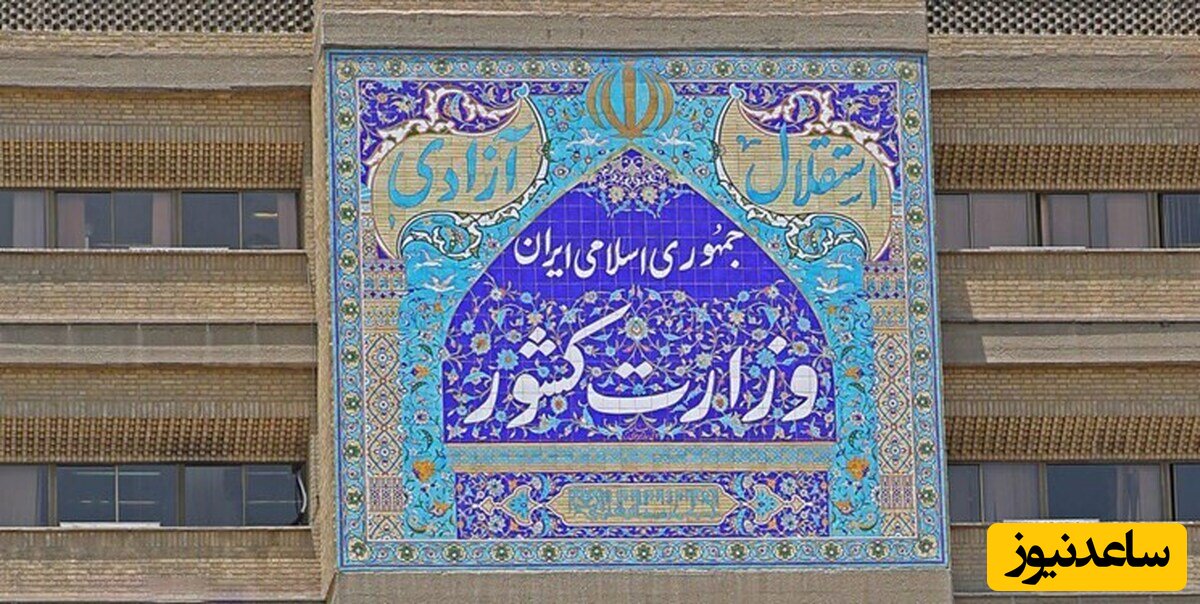 استقلال آزادی
جمهوری اسلامی ایران
وزارت کشور
ساعدنیوز